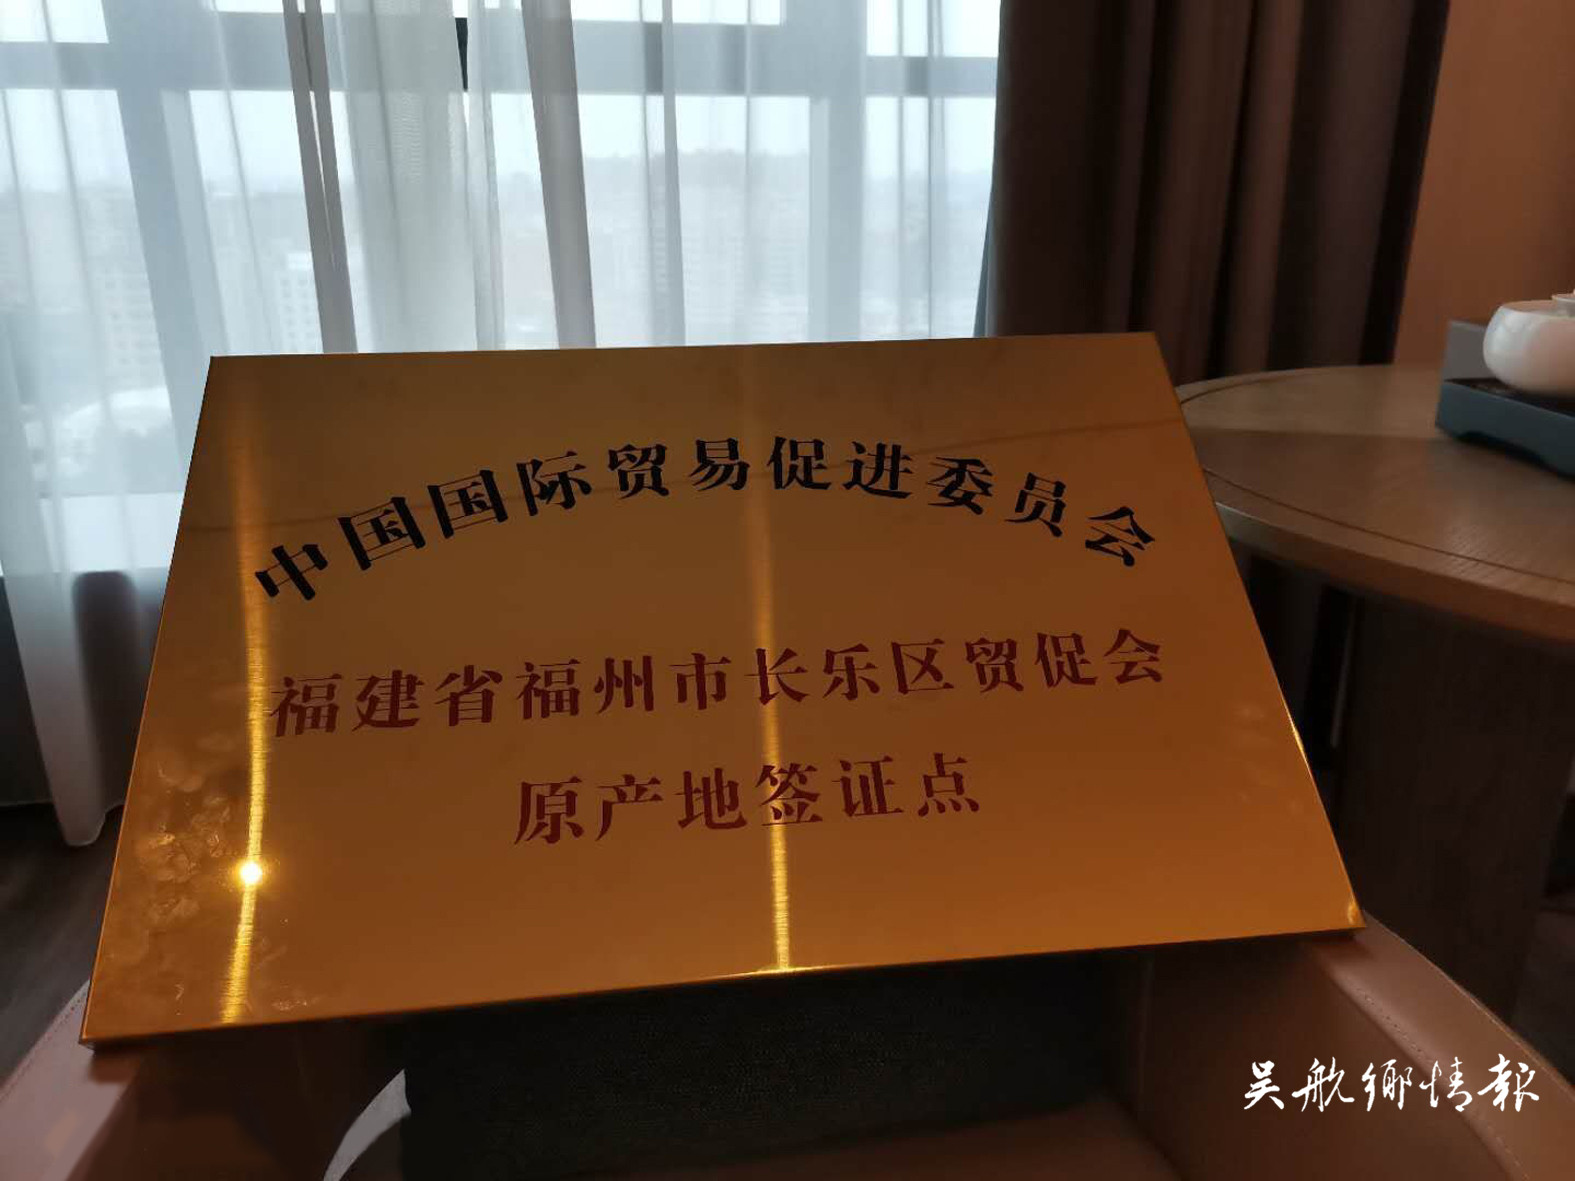 中国国际贸易促进委员会
福建省福州市长乐区贸促会
原产地签证点
吴航乡情报